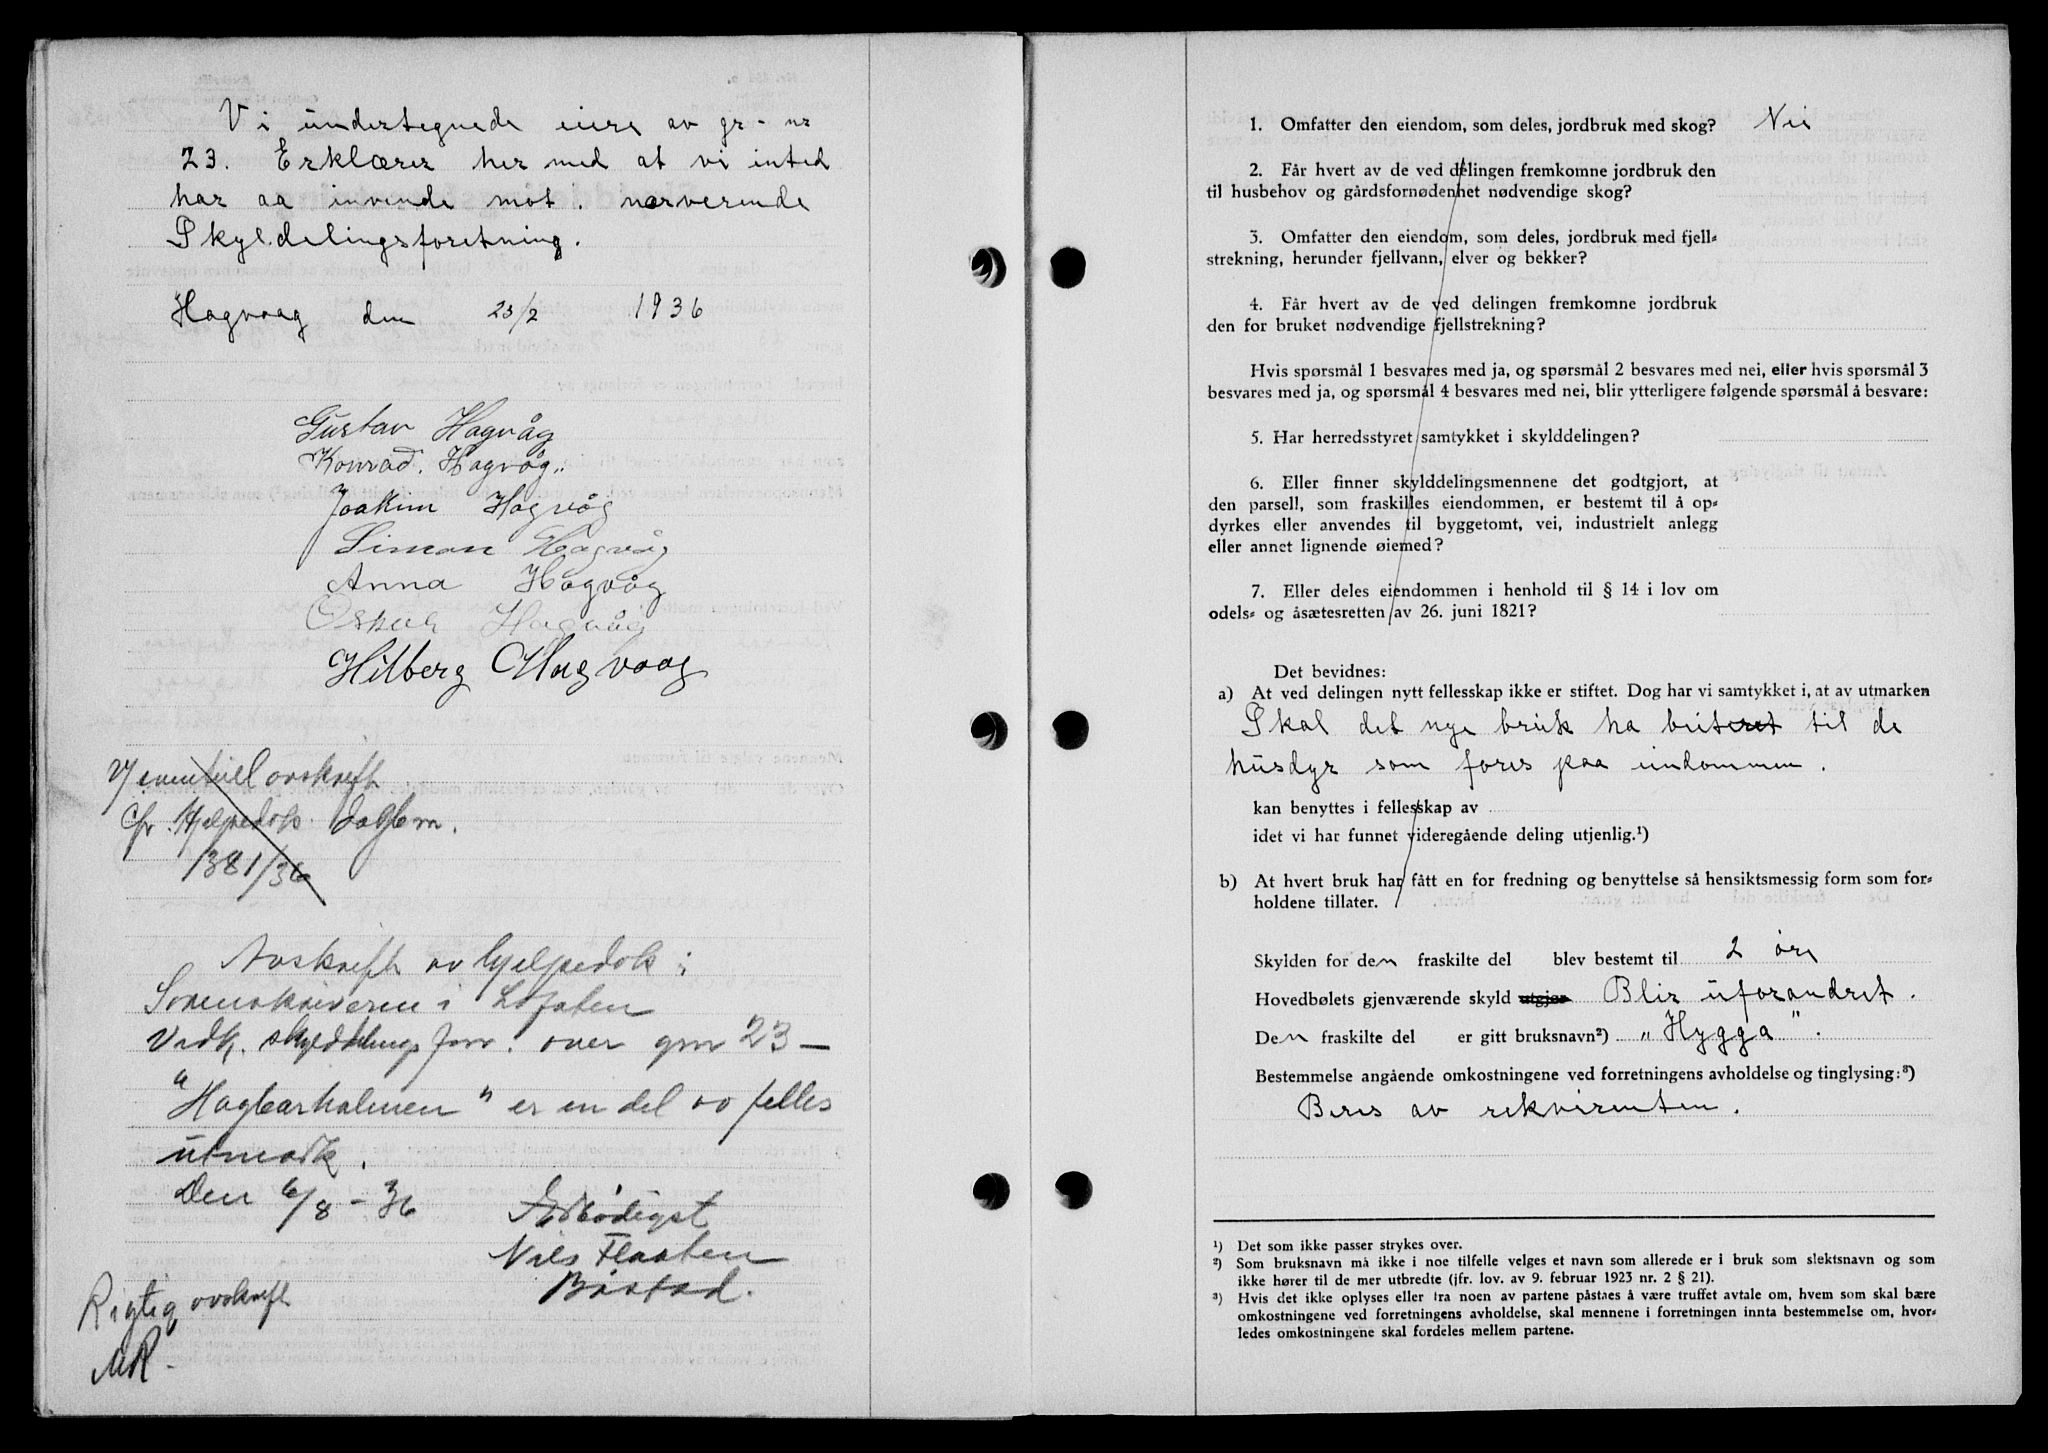 Vi undertegnede eiere av gr-nr
23. Erklærer her med at vi inted
har aa invende mot. nærverende
Skyldelingsforetning.
Hagvaag den 23/2 1936
Gustav Hagvåg
Konrad. Hagvåg..
Joakim Hagvåg
Simon Hagvåg
Anna Hagvåg
Oskar Hagvåg
Hilberg Hagvaag
V/ eventuell avskrift
Cfr. Hjelpedok.
1381/36
Avskrift av hjelpedok:
Sorenskriveren i Lofoten
Vedk. skylddelings forr. over gnr 23 —
"Hagbarholmen" er en del av felles
utmark.
Den 6/8 - 36
Ærbødigst
Nils Flaaten
Bøstad.
Rigtig avskrift
MR-
1. Omfatter den eiendom, som deles, jordbruk med skog? Nei
2. Får hvert av de ved delingen fremkomne jordbruk den
til husbehov og gårdsfornødenhet nødvendige skog?
3. Omfatter den eiendom, som deles, jordbruk med fjell=
strekning, herunder fjellvann, elver og bekker?
4. Får hvert av de ved delingen fremkomne jordbruk
den for bruket nødvendige fjellstrekning?
Hvis spørsmål 1 besvares med ja, og spørsmål 2 besvares med nei, eller hvis spørsmål 3
besvares med ja, og spørsmål 4 besvares med nei, blir ytterligere følgende spørsmål å besvare:
5. Har herredsstyret samtykket i skylddelingen?
6. Eller finner skylddelingsmennene det godtgjort, at
den parsell, som fraskilles eiendommen, er bestemt til å op=
dyrkes eller anvendes til byggetomt, vei, industrielt anlegg
eller annet lignende øiemed?
7. Eller deles eiendommen i henhold til § 14 i lov om
odels= og åsætesretten av 26. juni 1821?
Det bevidnes:
a) At ved delingen nytt fellesskap ikke er stiftet. Dog har vi samtykket i, at av utmarken
Skal det nye bruk ha beiteret til de
husdyr som fores paa eindommen.
kan benyttes i fellesskap av
idet vi har funnet videregående deling utjenlig.¹)
b) At hvert bruk har fått en for fredning og benyttelse så hensiktsmessig form som for=
holdene tillater.
Skylden for den fraskilte del blev bestemt til 2 øre
Hovedbølets gjenværende skyld utgjør Blir uforandret.
Den fraskilte del er gitt bruksnavn²) "Hygga".
Bestemmelse angående omkostningene ved forretningens avholdelse og tinglysing:³)
Beres av rekvirenten.
¹) Det som ikke passer strykes over.
²) Som bruksnavn må ikke i noe tilfelle velges et navn som allerede er i bruk som slektsnavn og som
ikke hører til de mer utbredte (jfr. lov. av 9. februar 1923 nr. 2 § 21).
³) Hvis det ikke oplyses eller fra noen av partene påstaes å være truffet avtale om, hvem som skal bære
omkostningene ved forretningens avholdelse, skal mennene i forretningen innta bestemmelse om, hvor=
ledes omkostningene skal fordeles mellem partene.